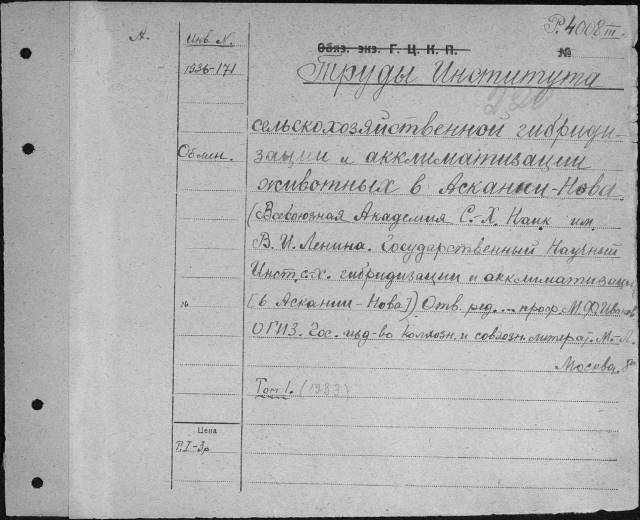 А.
Инв. N.
Обяз. экз. Г. Ц. К. П.
Р. 4008 III
№
1936-171
Труды Института
220
сельскохозяйственной гибриди-
Обмен.
зации и акклиматизации
животных в Аскании-Нова
(Всесоюзная Академия С.-Х. Наук им.
В. И. Ленина. Государственный Научный
Инст. с.-х. гибридизации и акклиматизации
[в Аскании-Нова]) Отв. ред. ... проф. М. Ф. Иванов
ОГИЗ. Гос. изд-во колхозн. и совхозн. литерат. М.-Л.
Москва. 8°
Том 1. (1933)
Цена
Т.I-3р